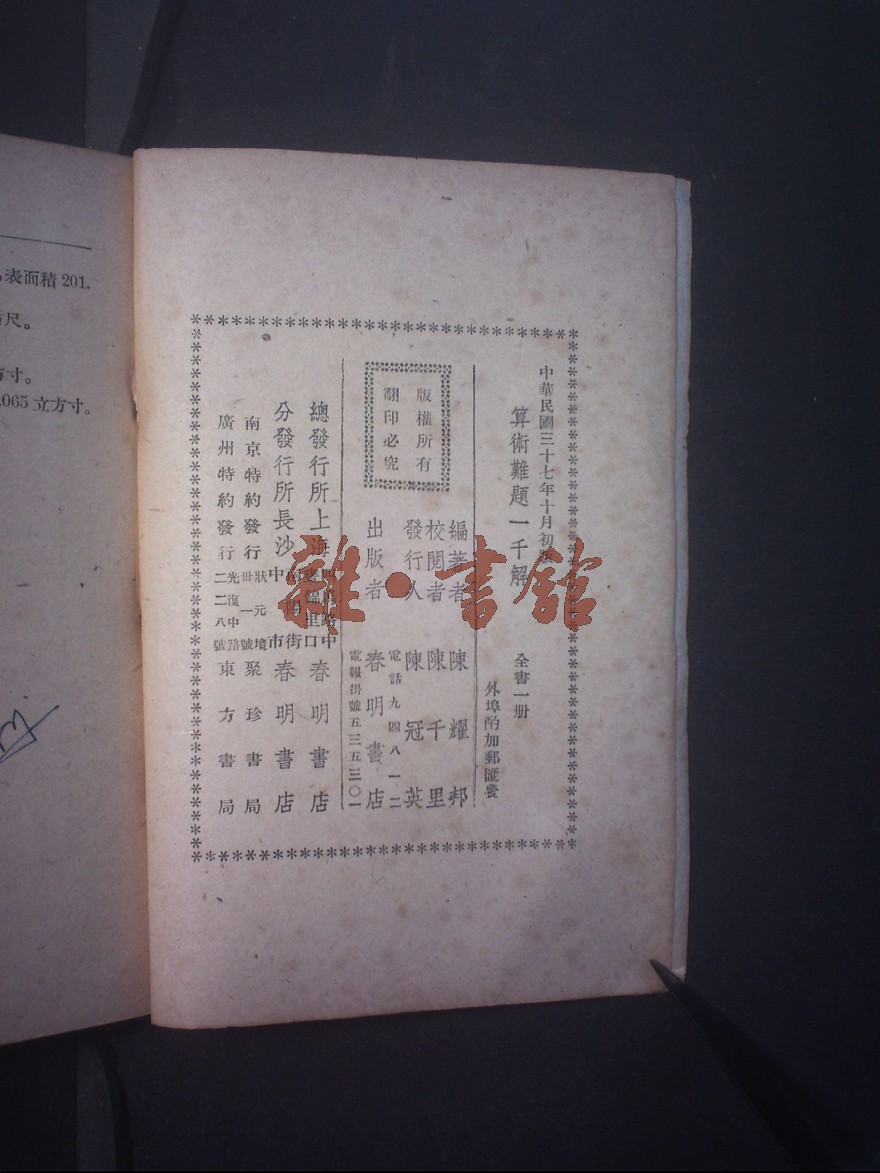 中華民國三十七年十月初版
算術難題一千解
全書一册
外埠酌加郵匯費
編著者 陳耀邦
校閱者 陳千里
發行人 陳冠英
電話九四八一二
出版者 春明書店
電報掛號五三五三〇一
版權所有
翻印必究
總發行所上海 四馬路中 口 春明書店
分發行所長沙 中 街市 春明書店
南京特約發行 狀元境 卅一號 聚珍書局
廣州特約發行 光復中路 二二八號 東方書局
雜·書館
表面積 201.
尺。
寸。
065 立方寸。